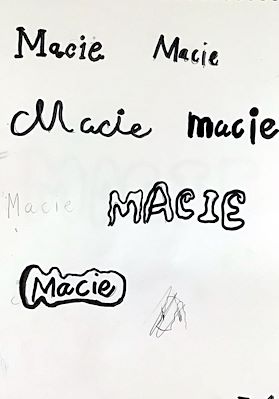 Macie Macie
Macie macie
Macie MACIE
Macie